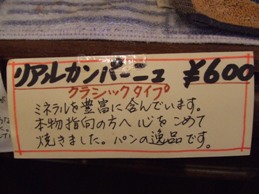 リアルカンパーニュ ¥600
クラシックタイプ
ミネラルを豊富に含んでいます。
本物指向の方へ心をこめて
焼きました。パンの逸品です。